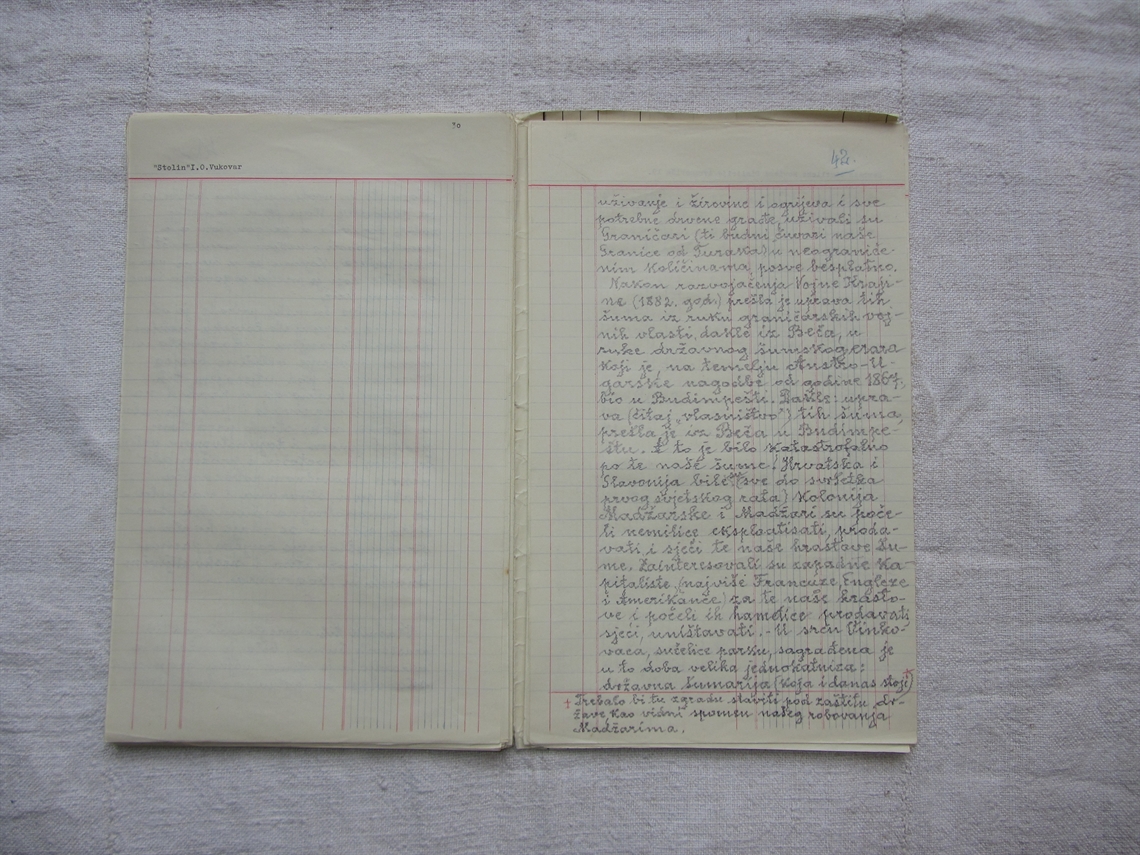 30
"Stolin"I.O.Vukovar
42.
uživanje i žirovine i ogrijeva i sve
potrebne drvene građe, uživali su
Graničari (ti budni čuvari naše
Granice od Turaka) u neograniče-
nim količinama, posve besplatno.
Nakon razvojačenja Vojne Kraji-
ne (1882. god.) prešla je uprava tih
šuma iz ruku graničarskih voj-
nih vlasti, dakle iz Beča, u
ruke državnog šumskog erara
koji je, na temelju Austro-U
garske nagodbe od godine 1867,
bio u Budimpešti. Dakle: upra-
va (čitaj „vlasništvo") tih šuma,
prešla je iz Beča u Budimpe-
štu. A to je bilo katastrofalno
po te naše šume. Hrvatska i
Slavonija bile (sve do svršetka
prvog svjetskog rata) kolonija
Madžarske i Madžari su poče-
li nemilice eksploatisati, proda-
vati i sjeći te naše hrastove šu-
me. Zainteresovali su zapadne ka-
pitaliste, (najviše Francuze, Engleze
i Amerikance) za te naše hrasto-
ve i počeli ih hametice prodavati,
sjeći, uništavati. - U srcu Vinko-
vaca, sučelice parku, sagrađena je
u to doba velika jednokatnica:
državna šumarija (koja i danas stoji)+
+ Trebalo bi tu zgradu staviti pod zaštitu dr-
žave kao vidni spomen našeg robovanja
Madžarima.